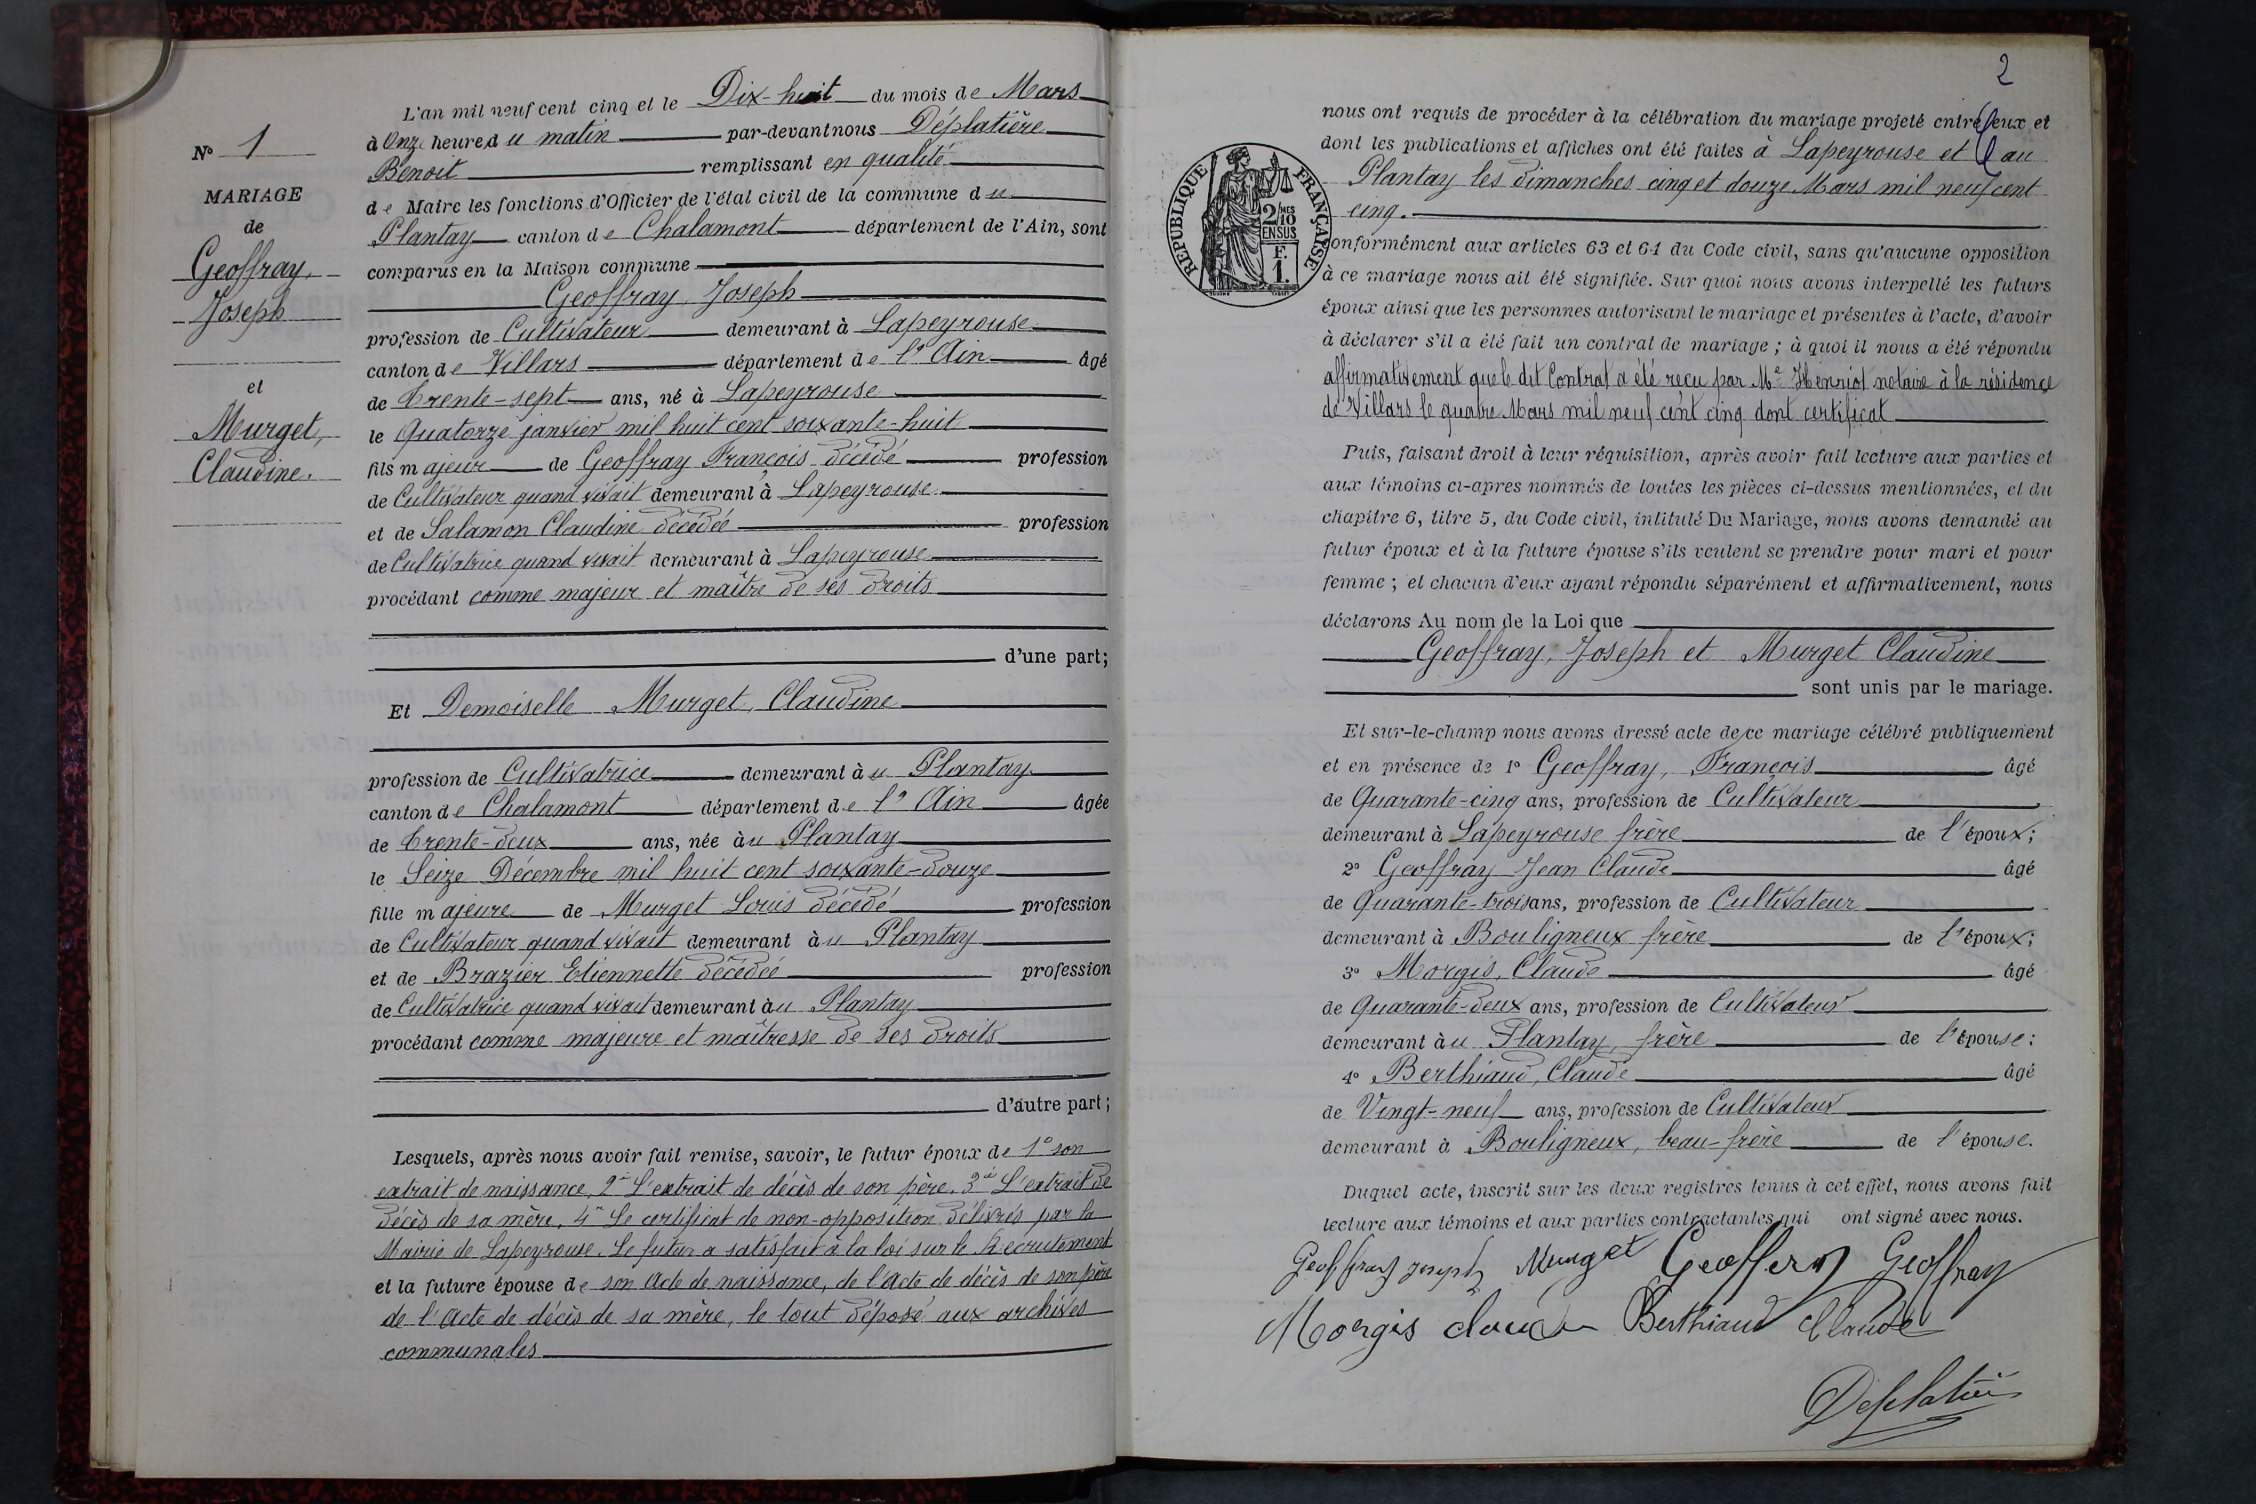 N° 1
MARIAGE
de
Geoffray,
Joseph
et
Murget,
Claudine.
L'an mil neuf cent cinq et le Dix-huit du mois de Mars
à Onze heure du matin par-devant nous Déplatière
Benoit remplissant en qualité
de Maire les fonctions d'Officier de l'état civil de la commune du
Plantay canton de Chalamont département de l'Ain, sont
comparus en la Maison commune
Geoffray, Joseph
profession de Cultivateur demeurant à Lapeyrouse
canton de Villars département de l'Ain âgé
de Trente-sept ans, né à Lapeyrouse
le Quatorze janvier mil huit cent soixante-huit
fils majeur de Geoffray François décédé profession
de Cultivateur quand vivait demeurant à Lapeyrouse
et de Salamon Claudine décédée profession
de Cultivatrice quand vivait demeurant à Lapeyrouse
procédant comme majeur et maître de ses droits
d'une part;
Et Demoiselle Murget, Claudine
profession de Cultivatrice demeurant au Plantay
canton de Chalamont département de l'Ain âgée
de Trente-deux ans, née au Plantay
le Seize Décembre mil huit cent soixante-douze
fille majeure de Murget Louis décédé profession
de Cultivateur quand vivait demeurant au Plantay
et de Brazier Etiennette décédée profession
de Cultivatrice quand vivait demeurant au Plantay
procédant comme majeure et maîtresse de ses droits
d'autre part;
Lesquels, après nous avoir fait remise, savoir, le futur époux de 1° son
extrait de naissance, 2° L'extrait de décès de son père, 3° L'extrait de
décès de sa mère, 4° Le certificat de non-opposition délivrés par la
Mairie de Lapeyrouse. Le futur a satisfait à la loi sur le Recrutement
et la future épouse de son acte de naissance, de l'acte de décès de son père
de l'acte de décès de sa mère, le tout déposé aux archives
communales
2
nous ont requis de procéder à la célébration du mariage projeté entre eux et
dont les publications et affiches ont été faites à Lapeyrouse et au
Plantay les dimanches cinq et douze Mars mil neuf cent
cinq.
RÉPUBLIQUE FRANÇAISE
2/10 MES
EN SUS
F.
1.
conformément aux articles 63 et 64 du Code civil, sans qu'aucune opposition
à ce mariage nous ait été signifiée. Sur quoi nous avons interpellé les futurs
époux ainsi que les personnes autorisant le mariage et présentes à l'acte, d'avoir
à déclarer s'il a été fait un contrat de mariage; à quoi il nous a été répondu
affirmativement que le dit Contrat a été reçu par Me Henriot notaire à la résidence
de Villars le quatre Mars mil neuf cent cinq dont certificat
Puis, faisant droit à leur réquisition, après avoir fait lecture aux parties et
aux témoins ci-apres nommés de toutes les pièces ci-dessus mentionnées, et du
chapitre 6, titre 5, du Code civil, intitulé Du Mariage, nous avons demandé au
futur époux et à la future épouse s'ils veulent se prendre pour mari et pour
femme; et chacun d'eux ayant répondu séparément et affirmativement, nous
déclarons Au nom de la Loi que
Geoffray, Joseph et Murget Claudine
sont unis par le mariage.
Et sur-le-champ nous avons dressé acte de ce mariage célébré publiquement
et en présence de 1° Geoffray, François âgé
de Quarante-cinq ans, profession de Cultivateur
demeurant à Lapeyrouse frère de l'époux;
2° Geoffray Jean Claude âgé
de Quarante-trois ans, profession de Cultivateur
demeurant à Bouligneux frère de l'époux;
3° Morgis, Claude âgé
de Quarante-deux ans, profession de Cultivateur
demeurant au Plantay, frère de l'épouse;
4° Berthiaud, Claude âgé
de Vingt-neuf ans, profession de Cultivateur
demeurant à Bouligneux, beau-frère de l'épouse.
Duquel acte, inscrit sur les deux registres tenus à cet effet, nous avons fait
lecture aux témoins et aux parties contractantes qui ont signé avec nous.
Geoffray Joseph Murget Geoffray Geoffray
Morgis Claude Berthiaud Claude
Déplatière